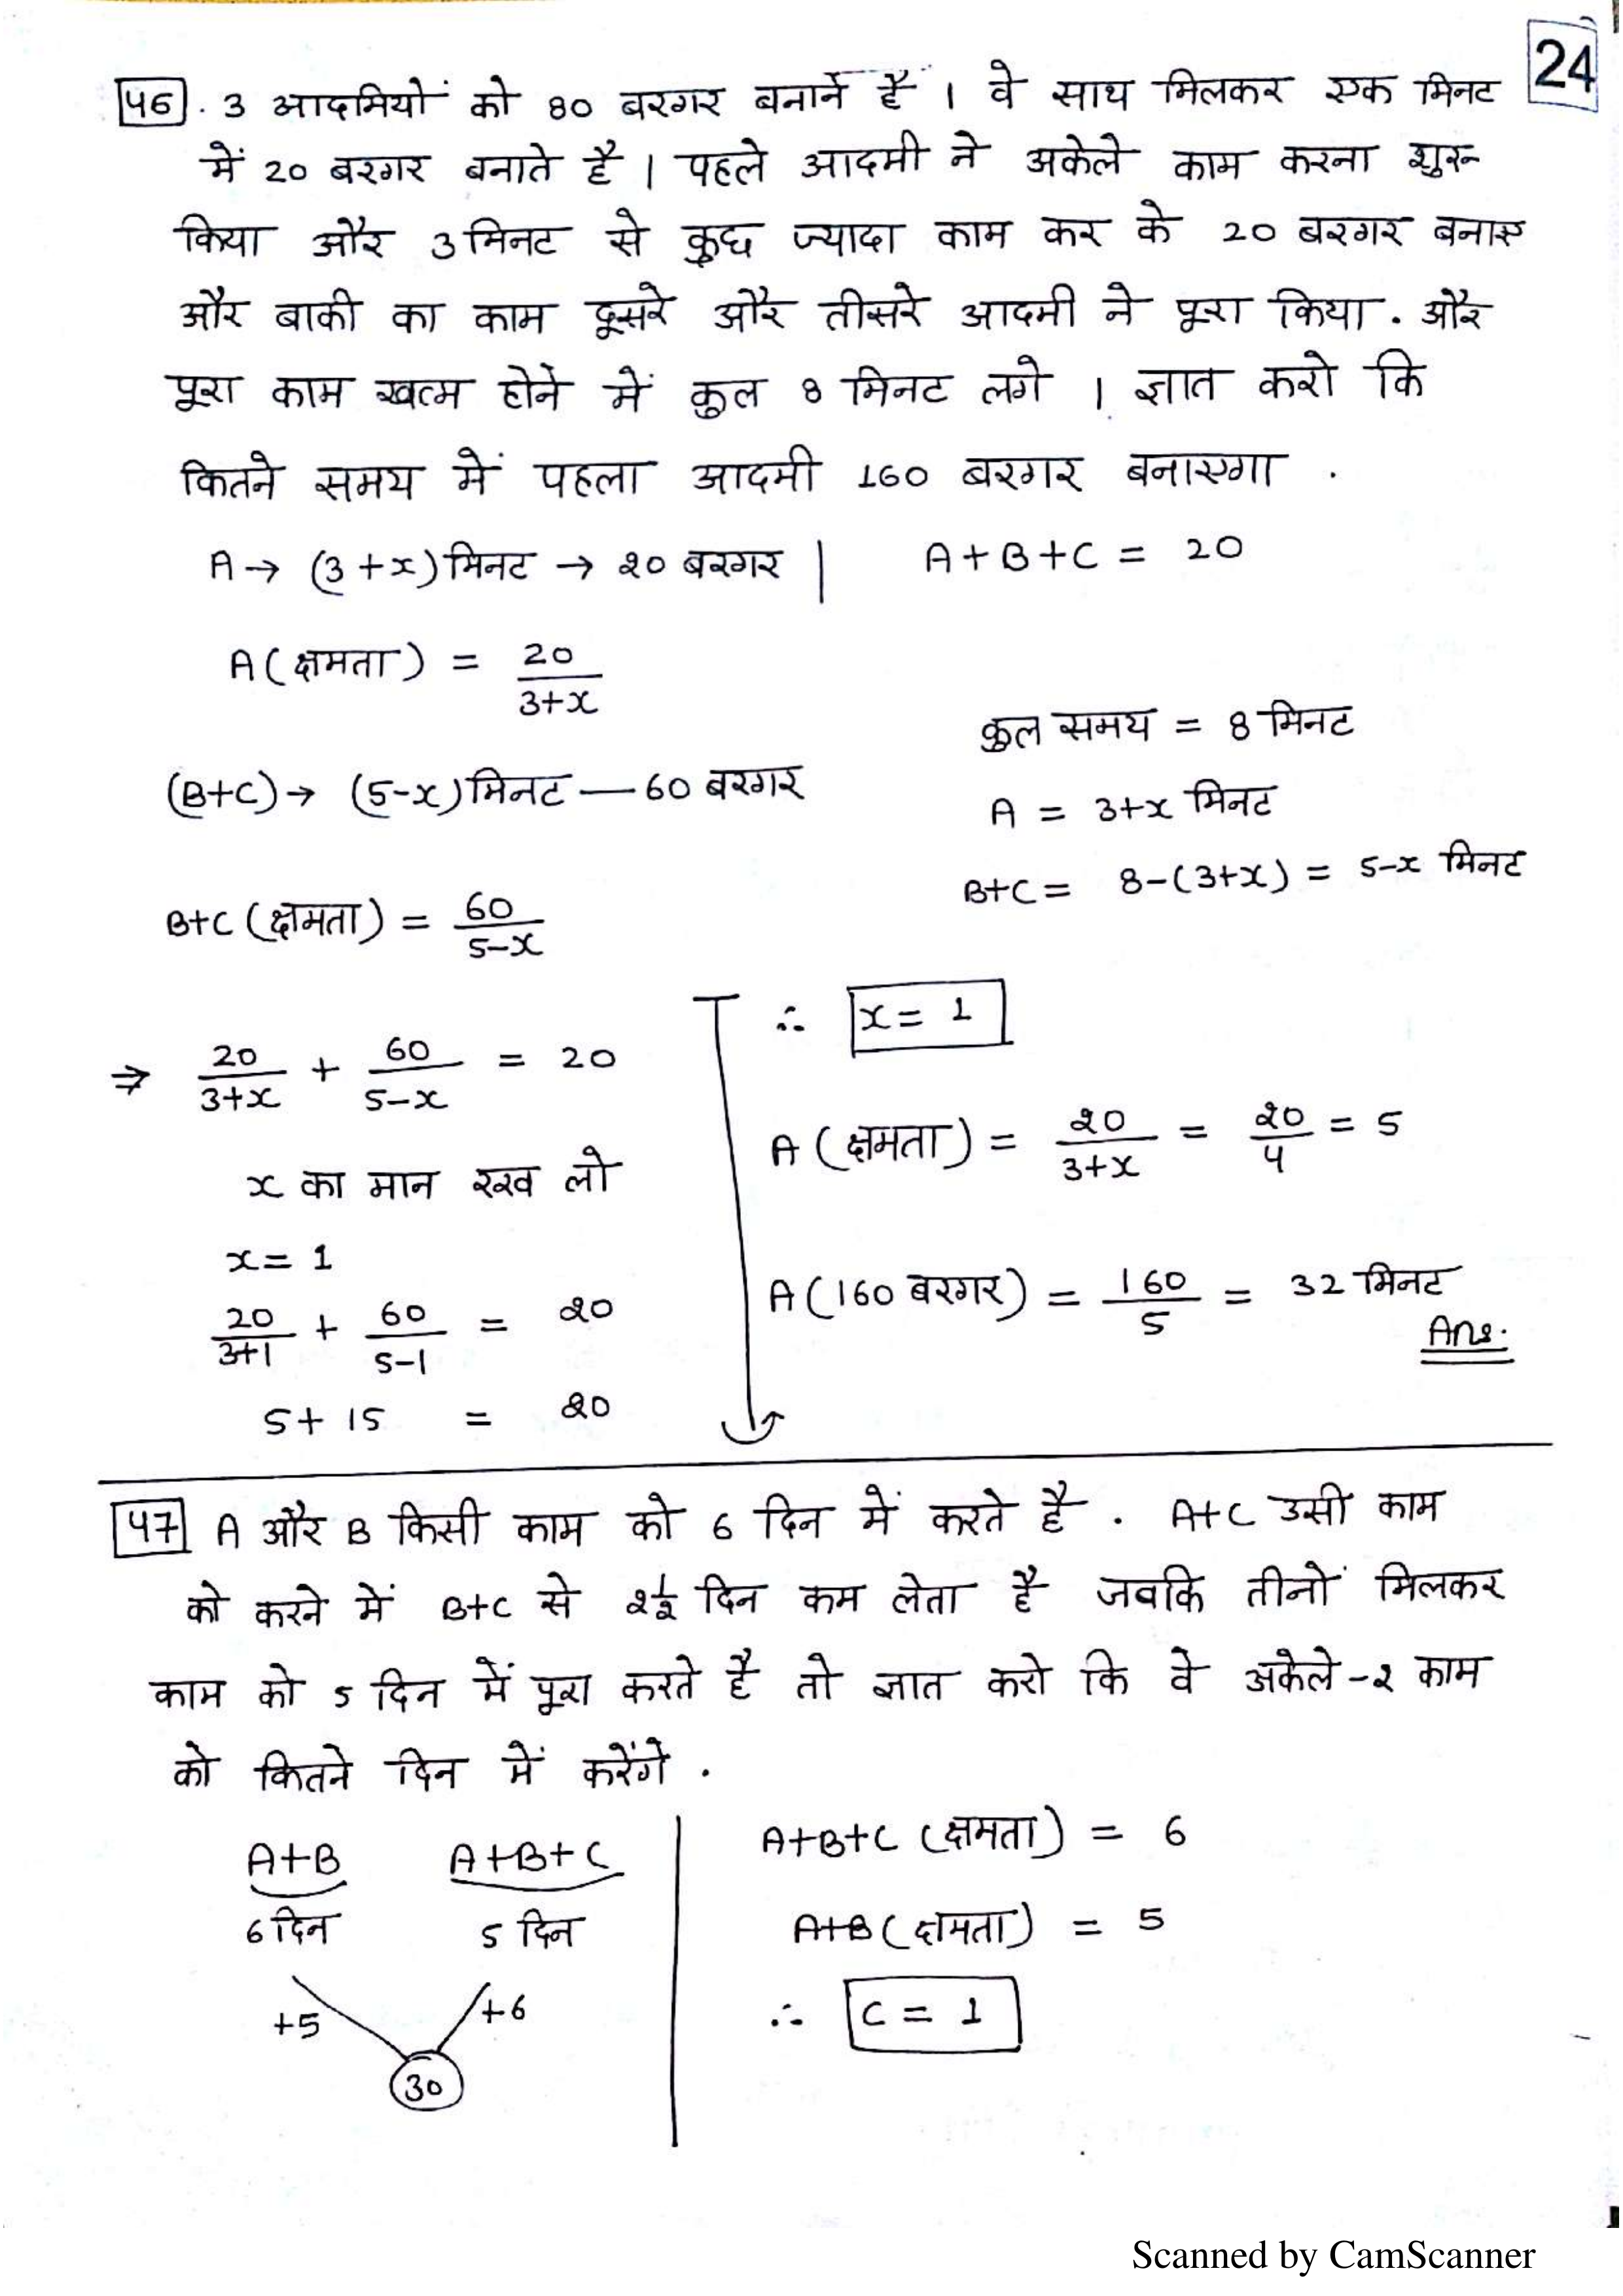 24
46. 3 आदमियों को 80 बरगर बनाने है । वे साथ मिलकर एक मिनट
में 20 बरगर बनाते है । पहले आदमी ने अकेले काम करना शुरू
किया और 3 मिनट से कुछ ज्यादा काम कर के 20 बरगर बनाए
और बाकी का काम दूसरे और तीसरे आदमी ने पूरा किया . और
पूरा काम खत्म होने में कुल 8 मिनट लगे । ज्ञात करो कि
कितने समय में पहला आदमी 160 बरगर बनाएगा .
A → (3+x) मिनट → 20 बरगर | A+B+C = 20
A (क्षमता) = 20/(3+x)
कुल समय = 8 मिनट
(B+C) → (5-x) मिनट — 60 बरगर
A = 3+x मिनट
B+C = 8-(3+x) = 5-x मिनट
B+C (क्षमता) = 60/(5-x)
⇒ 20/(3+x) + 60/(5-x) = 20
x का मान रख लो
x = 1
20/(3+1) + 60/(5-1) = 20
5 + 15 = 20
∴ x = 1
A (क्षमता) = 20/(3+x) = 20/4 = 5
A (160 बरगर) = 160/5 = 32 मिनट
Ans.
47 A और B किसी काम को 6 दिन में करते है . A+C उसी काम
को करने में B+C से 2½ दिन कम लेता है जबकि तीनों मिलकर
काम को 5 दिन में पूरा करते है तो ज्ञात करो कि वे अकेले-२ काम
को कितने दिन में करेंगे .
A+B A+B+C
6 दिन 5 दिन
+5 +6
30
A+B+C (क्षमता) = 6
A+B (क्षमता) = 5
∴ C = 1
Scanned by CamScanner